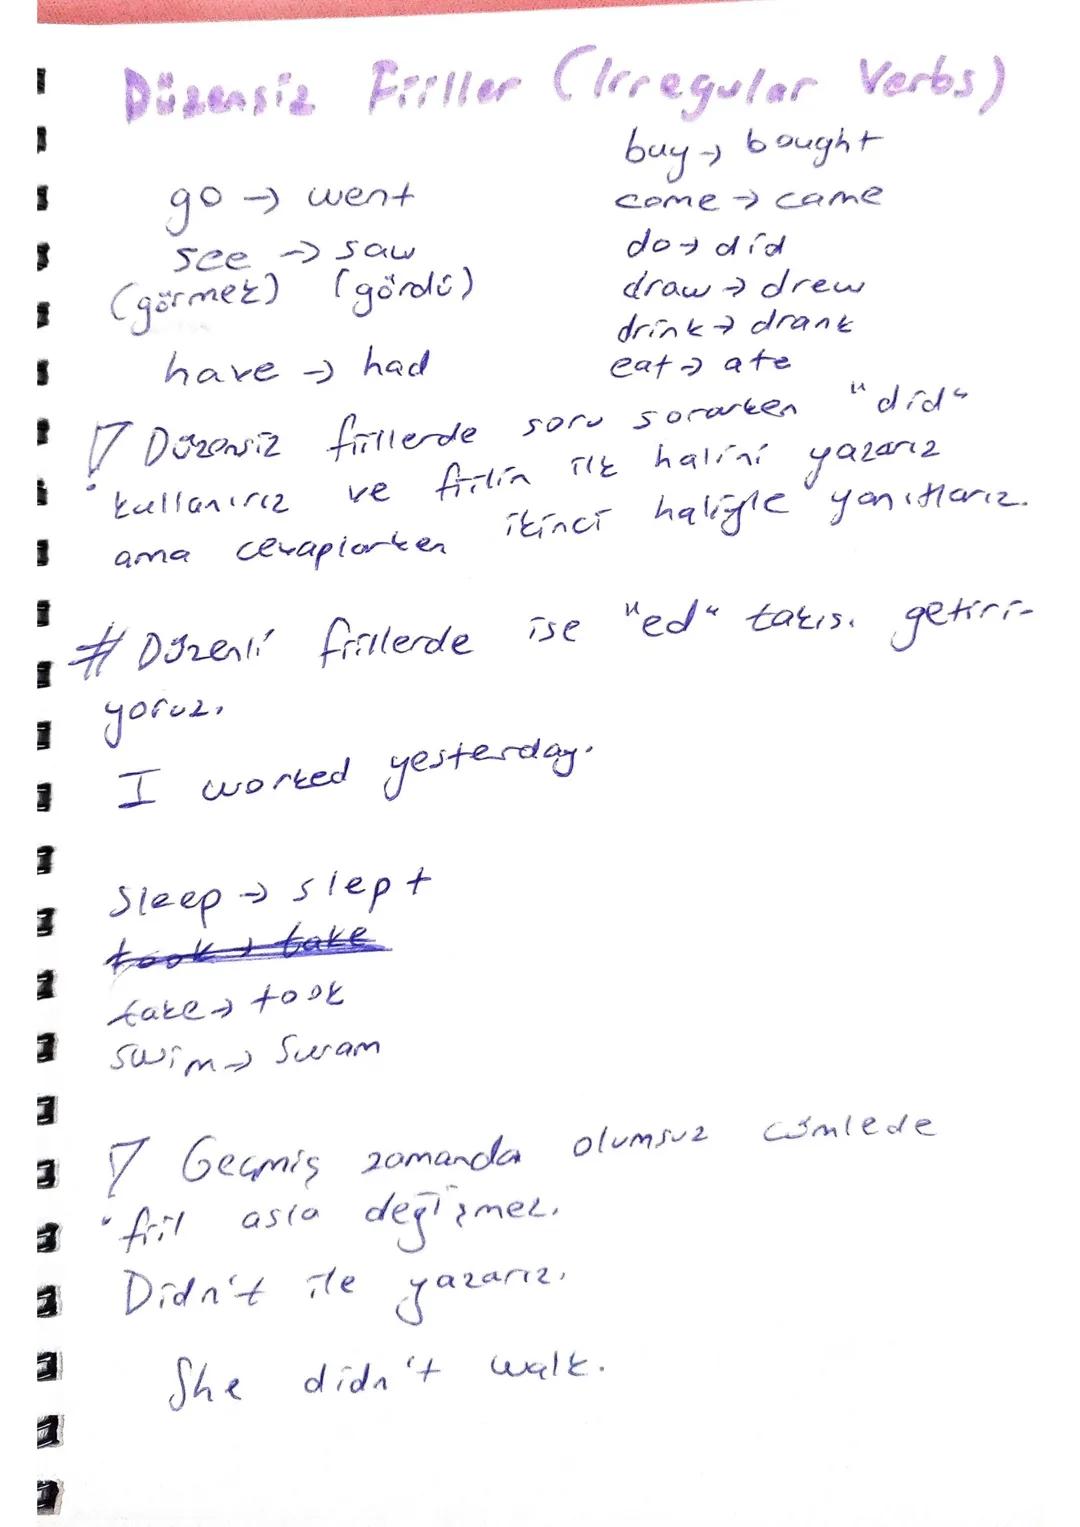 Düzensiz Fiiller (Irregular Verbs)
go → went
see → saw
(görmek) (gördü)
have → had
buy → bought
come → came
do → did
draw → drew
drink → drank
eat → ate
! Düzensiz fiillerde soru sorarken "did"
kullanırız ve fiilin ilk halini yazarız
ama cevaplarken ikinci haliyle yanıtlarız.
# Düzenli fiillerde ise "ed" takısı getiri-
yoruz.
I worked yesterday.
Sleep → slept
took → take
take → took
swim → Swam
! Geçmiş zamanda olumsuz cümlede
fiil asla değişmez.
Didn't ile yazarız.
She didn't walk.